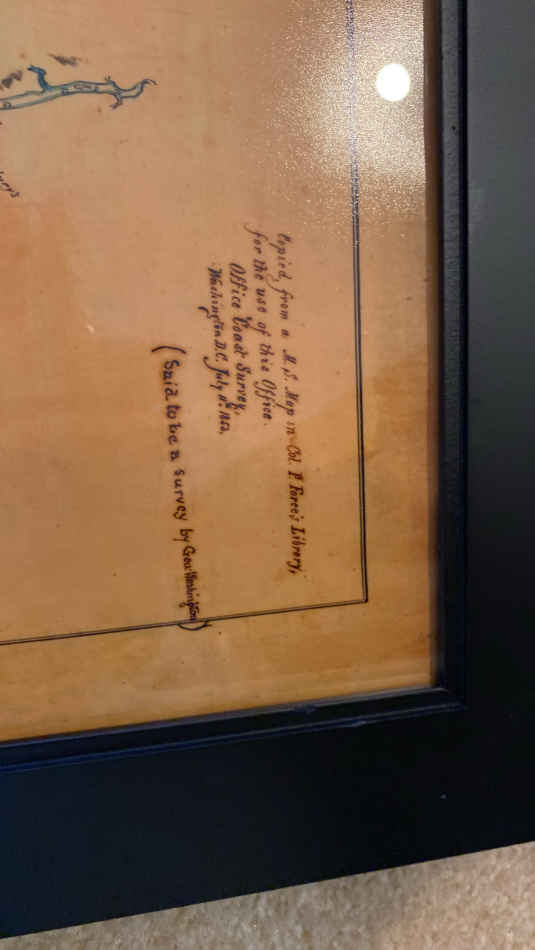 Copied from a M.S. Map in Col. P. Force's Library,
for the use of this Office.
Office Coast Survey,
Washington D.C. July
(Said to be a survey by Geo: Washington)